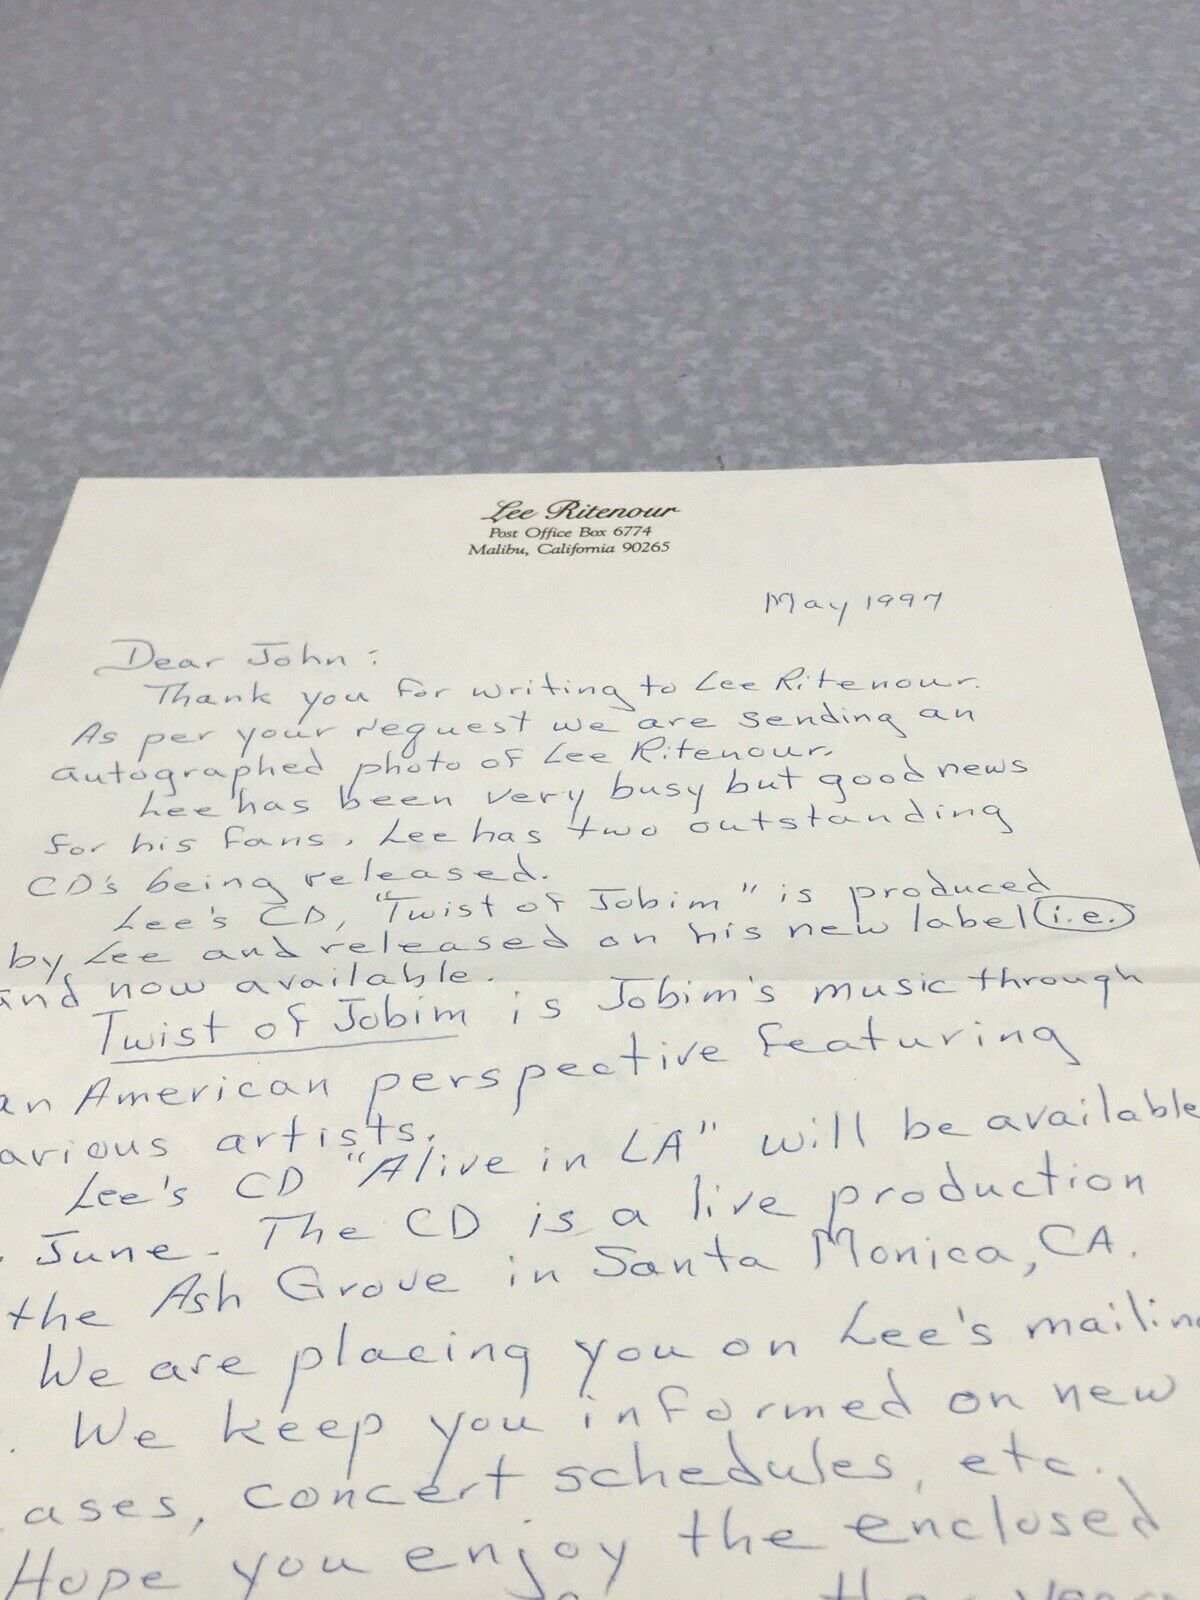 Lee Ritenour
Post Office Box 6774
Malibu, California 90265
May 1997
Dear John:
Thank you for writing to Lee Ritenour.
As per your request we are sending an
autographed photo of Lee Ritenour.
Lee has been very busy but good news
for his fans. Lee has two outstanding
CD's being released.
Lee's CD, "Twist of Jobim" is produced
by Lee and released on his new label i.e.
and now available.
Twist of Jobim is Jobim's music through
an American perspective featuring
arious artists.
Lee's CD "Alive in LA" will be available
June. The CD is a live production
the Ash Grove in Santa Monica, CA.
We are placing you on Lee's mailing
. We keep you informed on new
ases, concert schedules, etc.
Hope you enjoy the enclosed
the years